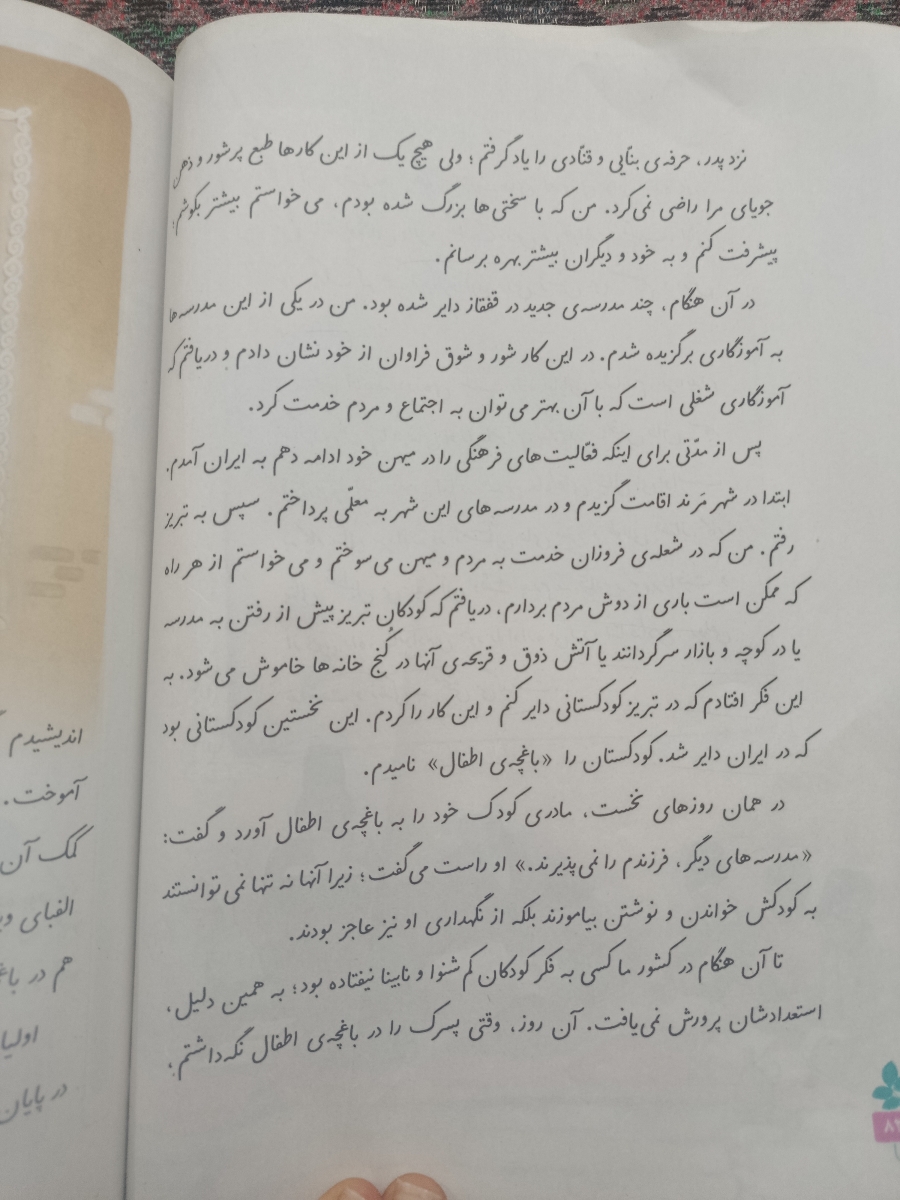 نزد پدر، حرفه‌ی بنّایی و قنّادی را یاد گرفتم؛ ولی هیچ یک از این کارها طبع پرشور و ذهن
جویای مرا راضی نمی‌کرد. من که با سختی‌ها بزرگ شده بودم، می‌خواستم بیشتر بکوشم،
پیشرفت کنم و به خود و دیگران بیشتر بهره برسانم.
در آن هنگام، چند مدرسه‌ی جدید در قفقاز دایر شده بود. من در یکی از این مدرسه‌ها
به آموزگاری برگزیده شدم. در این کار شور و شوق فراوان از خود نشان دادم و دریافتم که
آموزگاری شغلی است که با آن بهتر می‌توان به اجتماع و مردم خدمت کرد.
پس از مدّتی برای اینکه فعّالیت‌های فرهنگی را در میهن خود ادامه دهم به ایران آمدم.
ابتدا در شهر مَرند اقامت گزیدم و در مدرسه‌های این شهر به معلّمی پرداختم. سپس به تبریز
رفتم. من که در شعله‌ی فروزان خدمت به مردم و میهن می‌سوختم و می‌خواستم از هر راه
که ممکن است باری از دوش مردم بردارم، دریافتم که کودکانِ تبریز پیش از رفتن به مدرسه
یا در کوچه و بازار سرگردانند یا آتش ذوق و قریحه‌ی آنها در کُنج خانه‌ها خاموش می‌شود. به
این فکر افتادم که در تبریز کودکستانی دایر کنم و این کار را کردم. این نخستین کودکستانی بود
که در ایران دایر شد. کودکستان را «باغچه‌ی اطفال» نامیدم.
در همان روزهای نخست، مادری کودک خود را به باغچه‌ی اطفال آورد و گفت:
«مدرسه‌های دیگر، فرزندم را نمی‌پذیرند.» او راست می‌گفت؛ زیرا آنها نه تنها نمی‌توانستند
به کودکش خواندن و نوشتن بیاموزند بلکه از نگهداری او نیز عاجز بودند.
تا آن هنگام در کشور ما کسی به فکر کودکان کم‌شنوا و نابینا نیفتاده بود؛ به همین دلیل،
استعدادشان پرورش نمی‌یافت. آن روز، وقتی پسرک را در باغچه‌ی اطفال نگه داشتم،
اندیشیدم
آموخت.
کمک آن
الفبای
هم در
در پایان